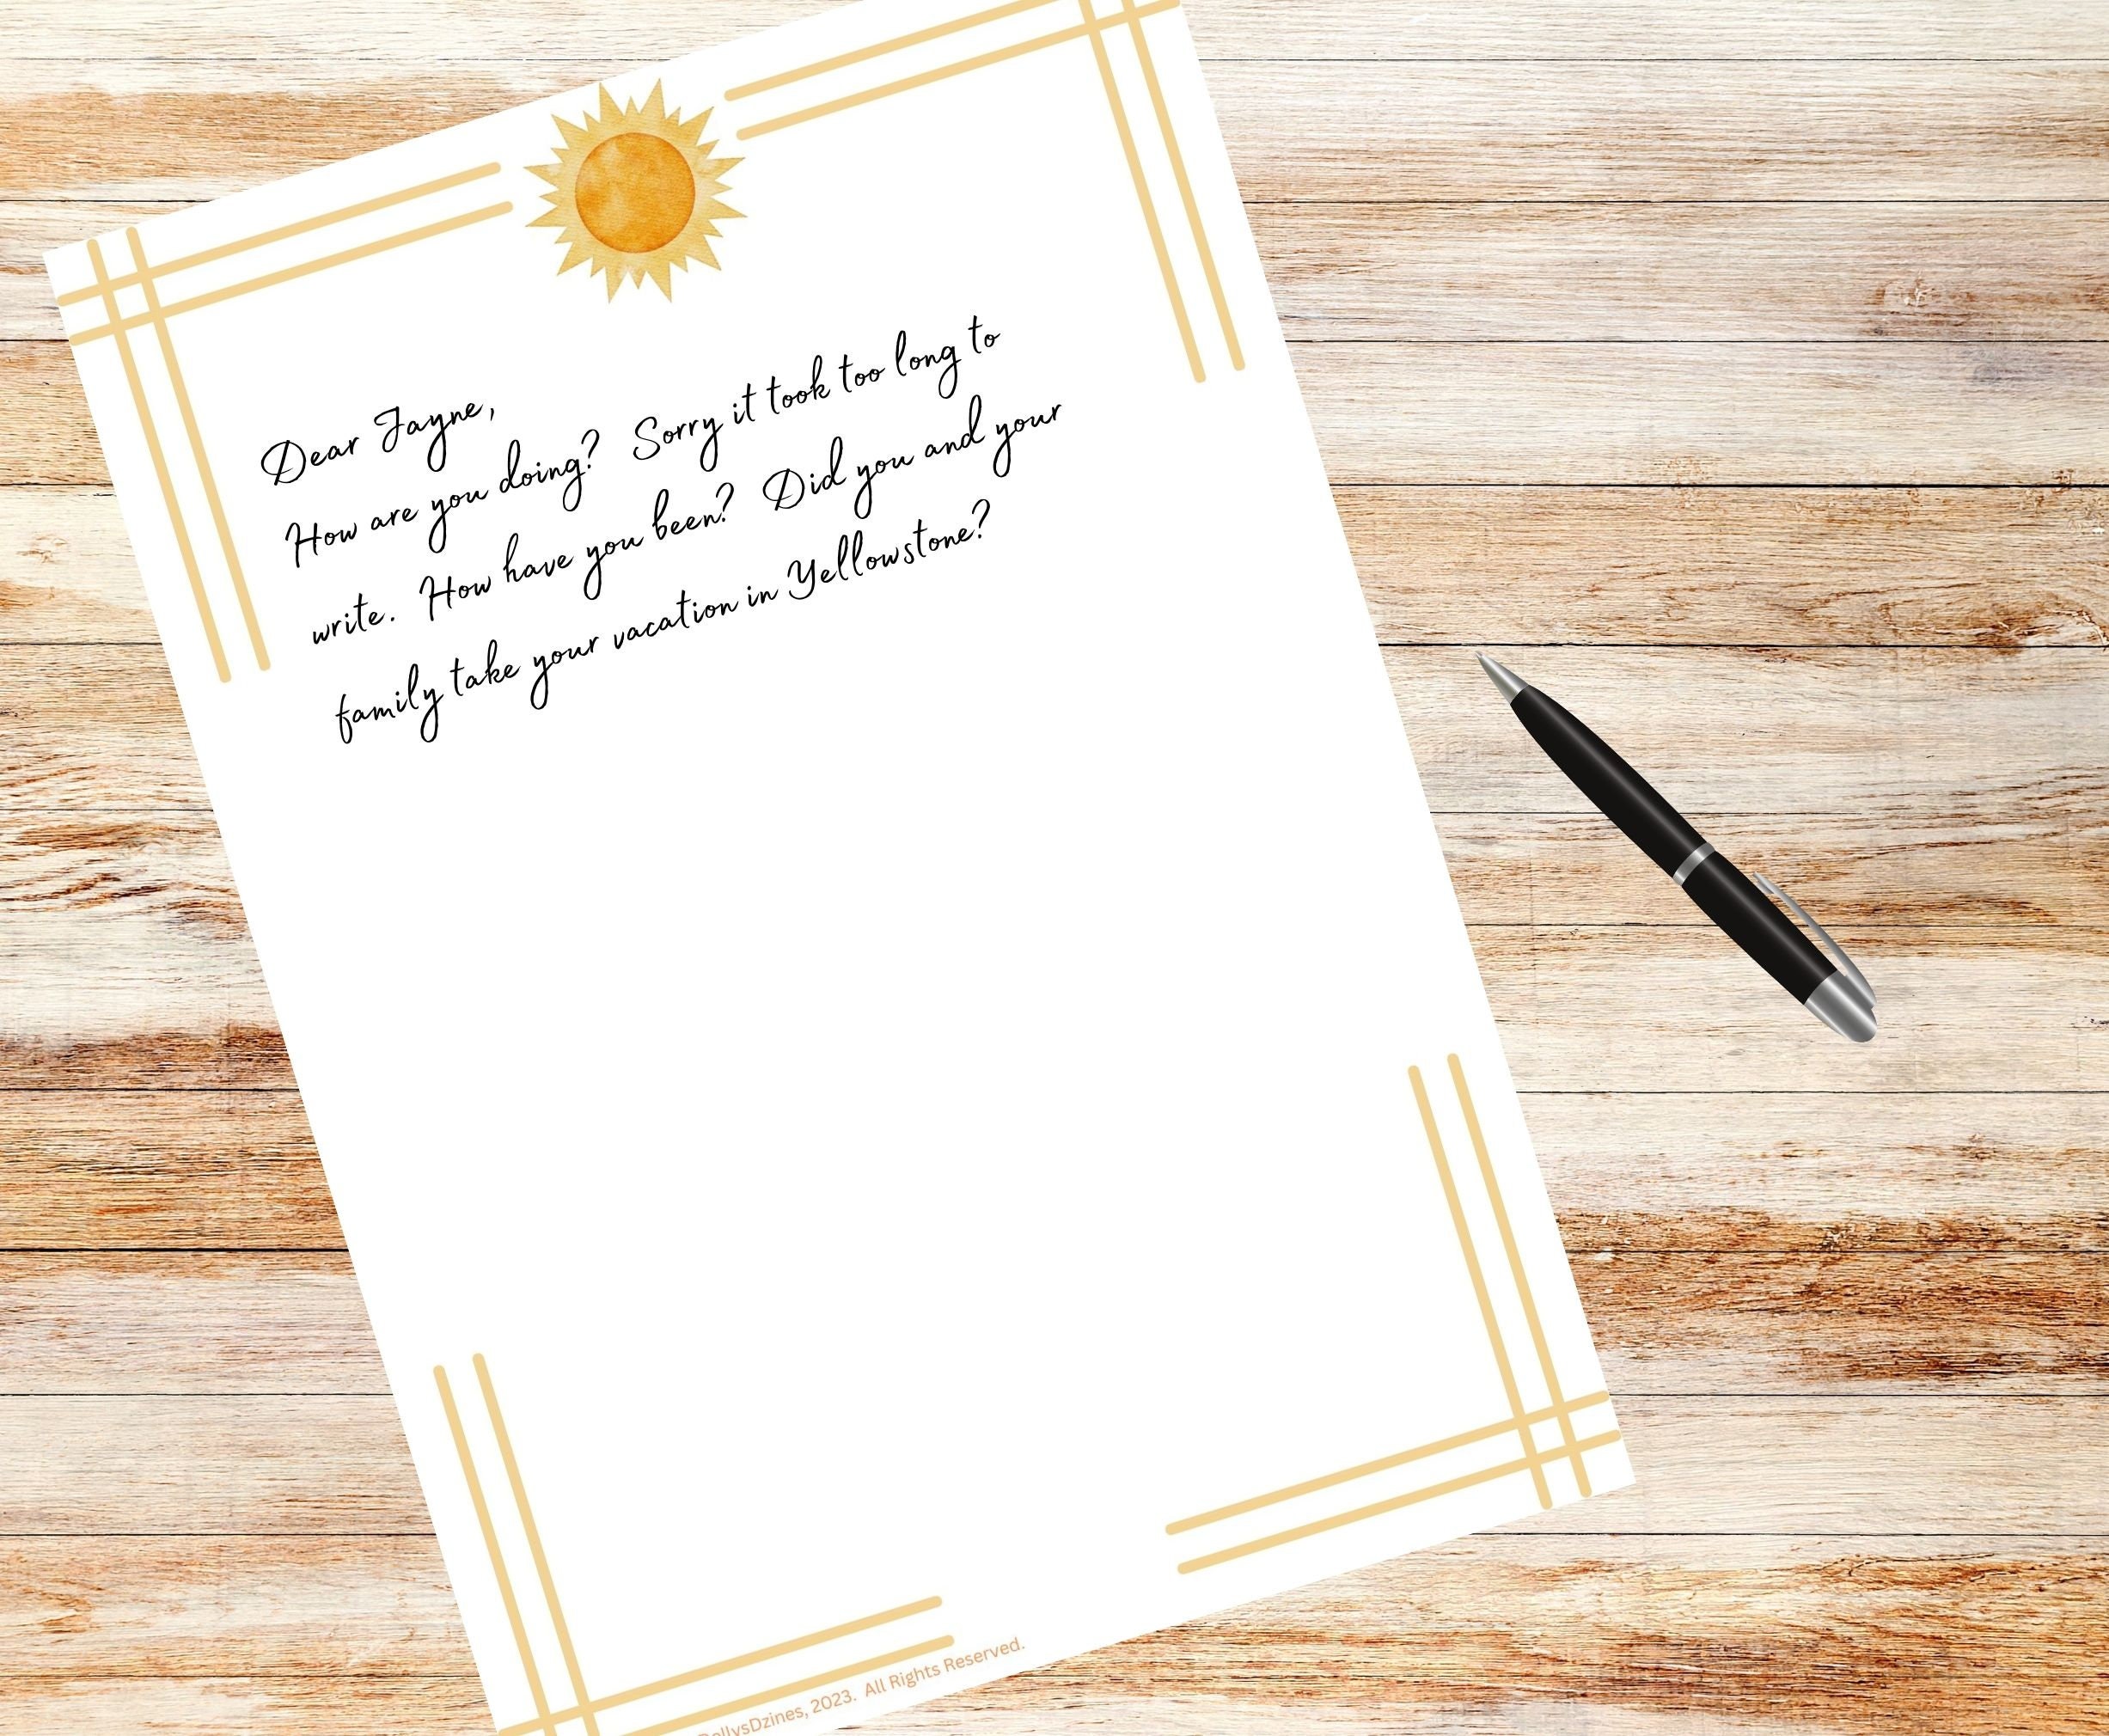 Dear Jayne,
How are you doing? Sorry it took too long to
write. How have you been? Did you and your
family take your vacation in Yellowstone?
DollysDzines, 2023. All Rights Reserved.